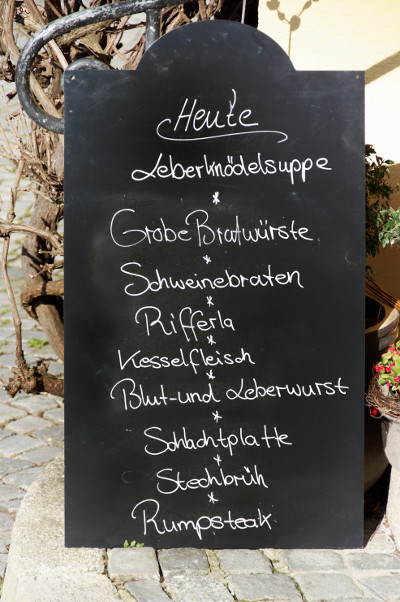 Heute
Leberknödelsuppe
*
Grobe Bratwürste
*
Schweinebraten
*
Rifferla
*
Kesselfleisch
*
Blut-und Leberwurst
*
Schlachtplatte
*
Stechbrüh
*
Rumpsteak